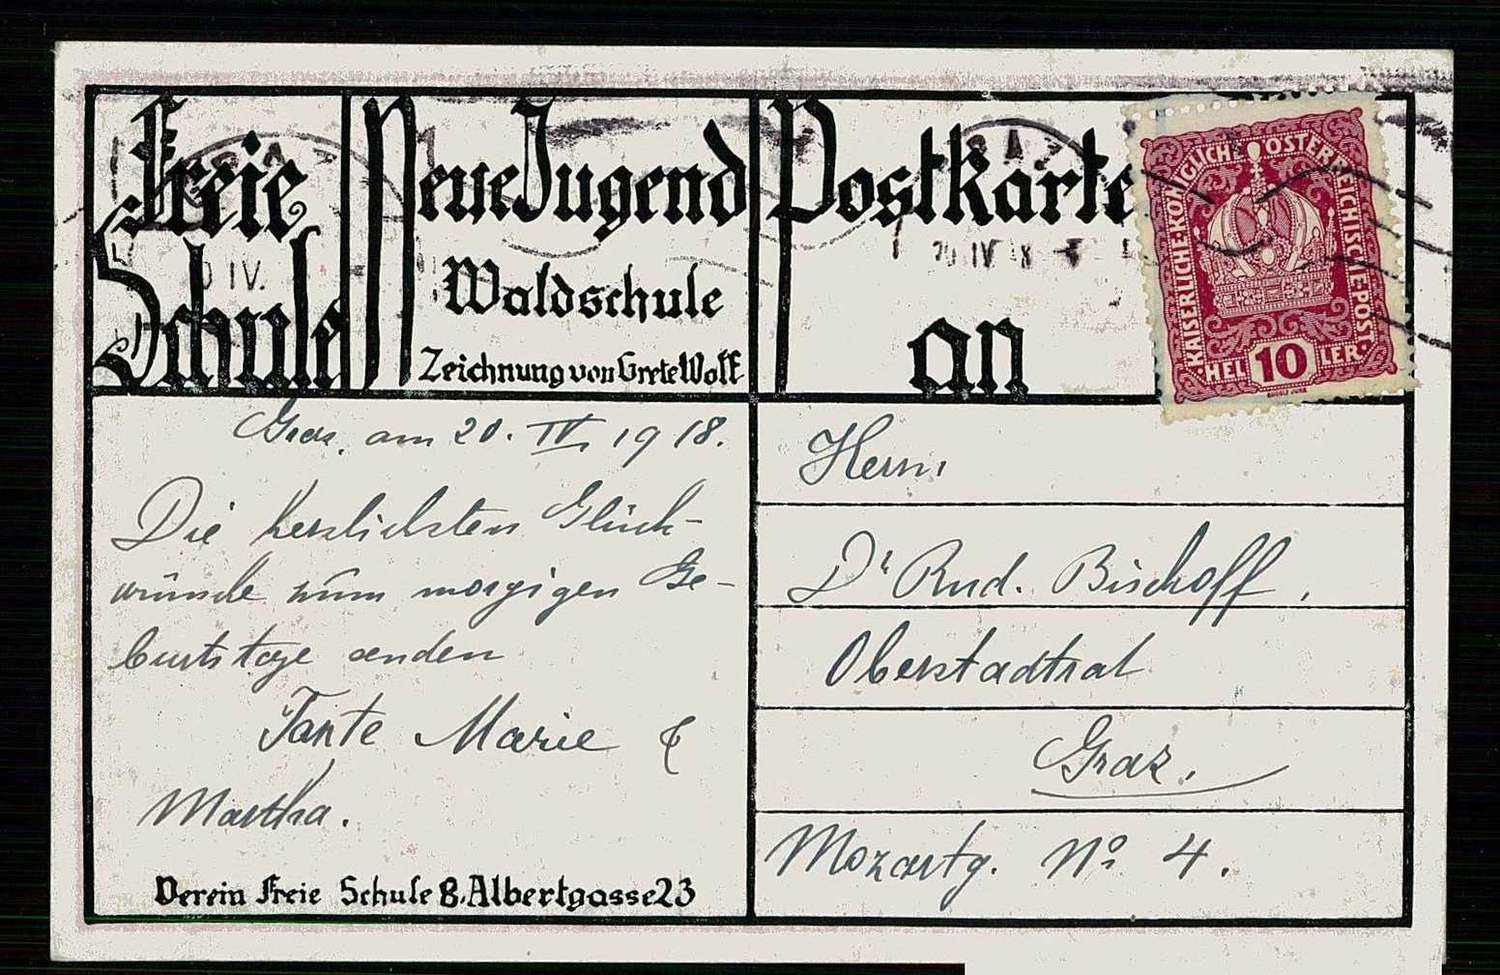 Freie
Schule
Neue Jugend
Waldschule
Zeichnung von Grete Wolf
Postkarte
an
KAISERLICHE KÖNIGLICHE ÖSTERREICHISCHE POST
HELLER
10
20 IV 18
IV.
Graz, am 20. IV. 1918.
Die herzlichsten Glück-
wünsche zum morgigen Ge-
burtstage senden
Tante Marie &
Martha.
Verein Freie Schule 8. Albertgasse 23
Herrn
Dr Rud. Bischoff,
Oberstadtrat
Graz.
Mozartg. No 4.